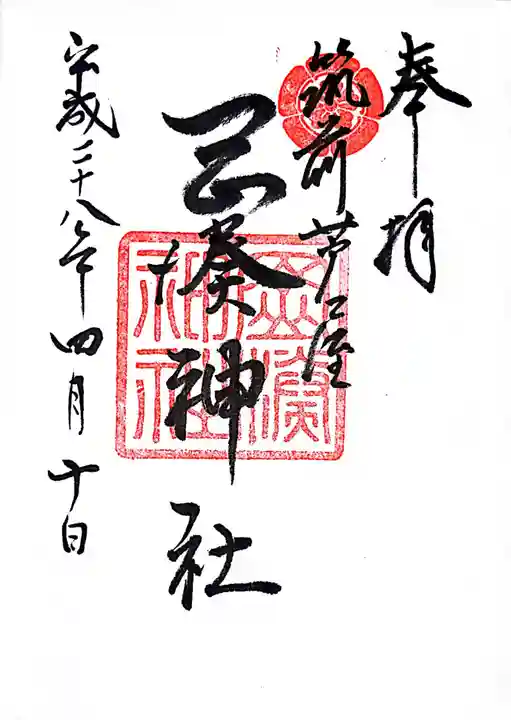 奉拝
筑前芦屋
岡湊神社
岡湊神社
平成二十八年四月十日